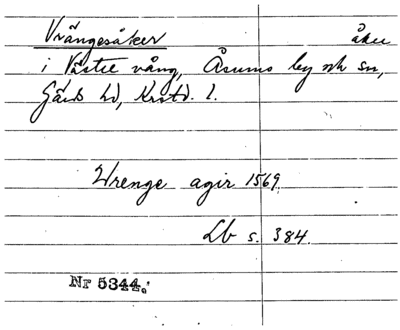 Vrångesåker åker
i Västre vång, Åsums by och sn,
Gärds hd, Krist. l.
Wrenge agir 1569.
Lb s. 384.
Nr 5344.